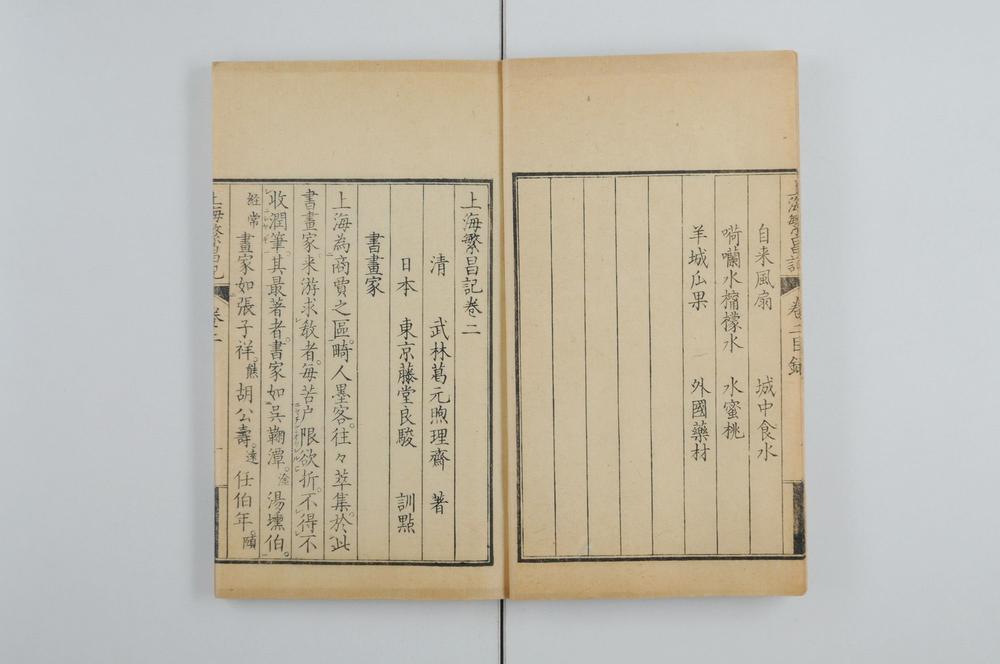 上海繁昌記 卷二目錄
自来風扇 城中食水
嗬囒水檸檬水 水蜜桃
羊城瓜果 外國藥材
上海繁昌記卷二
清 武林葛元煦理齋 著
日本 東京藤堂良駿 訓點
書畫家
上海為商賈之區畸人墨客往々萃集於此
書畫家来游求教者每苦户限欲折不得不
收潤筆其最著者書家如吳鞠潭淦湯壎伯
經常畫家如張子祥熊胡公壽遠任伯年頤
上海繁昌記 卷二